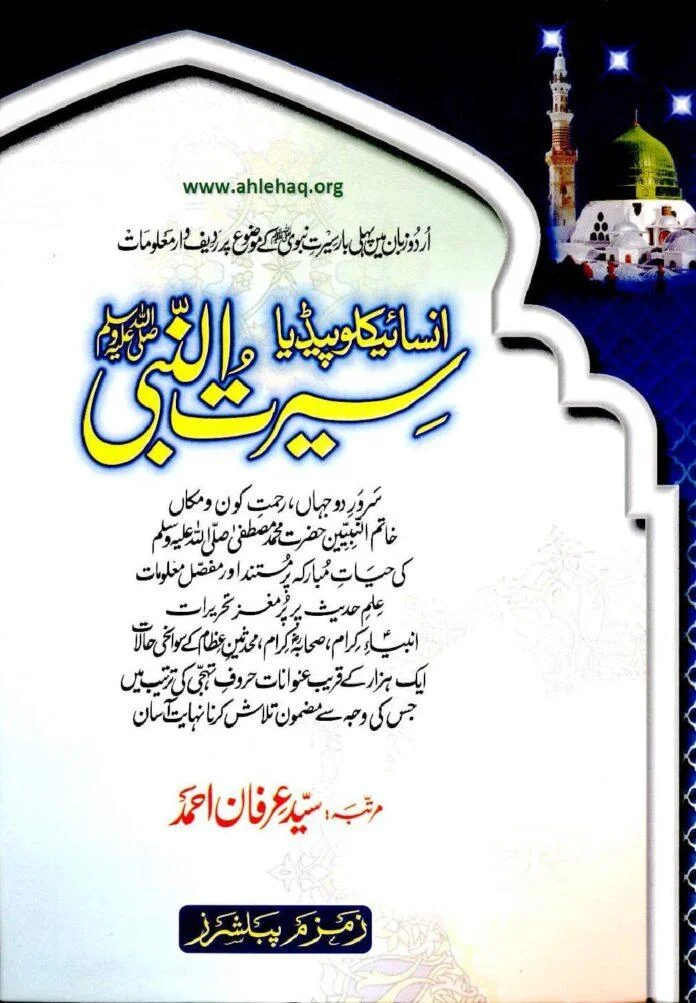 www.ahlehaq.org
اردو زبان میں پہلی بار سیرتِ نبوی ﷺ کے موضوع پر ردیف وار معلومات
انسائیکلوپیڈیا
سیرت النبی صلی اللہ علیہ وسلم
سرورِ دو جہاں، رحمتِ کون و مکاں
خاتم النبیین حضرت محمد مصطفیٰ صلی اللہ علیہ وسلم
کی حیاتِ مبارکہ پر مستند اور مفصل معلومات
علمِ حدیث پر پُر مغز تحریرات
انبیاءِ کرام، صحابہ کرام، محدثینِ عظام کے سوانحی حالات
ایک ہزار کے قریب عنوانات حروفِ تہجی کی ترتیب میں
جس کی وجہ سے مضمون تلاش کرنا نہایت آسان
مرتبہ: سید عرفان احمد
زمزم پبلشرز